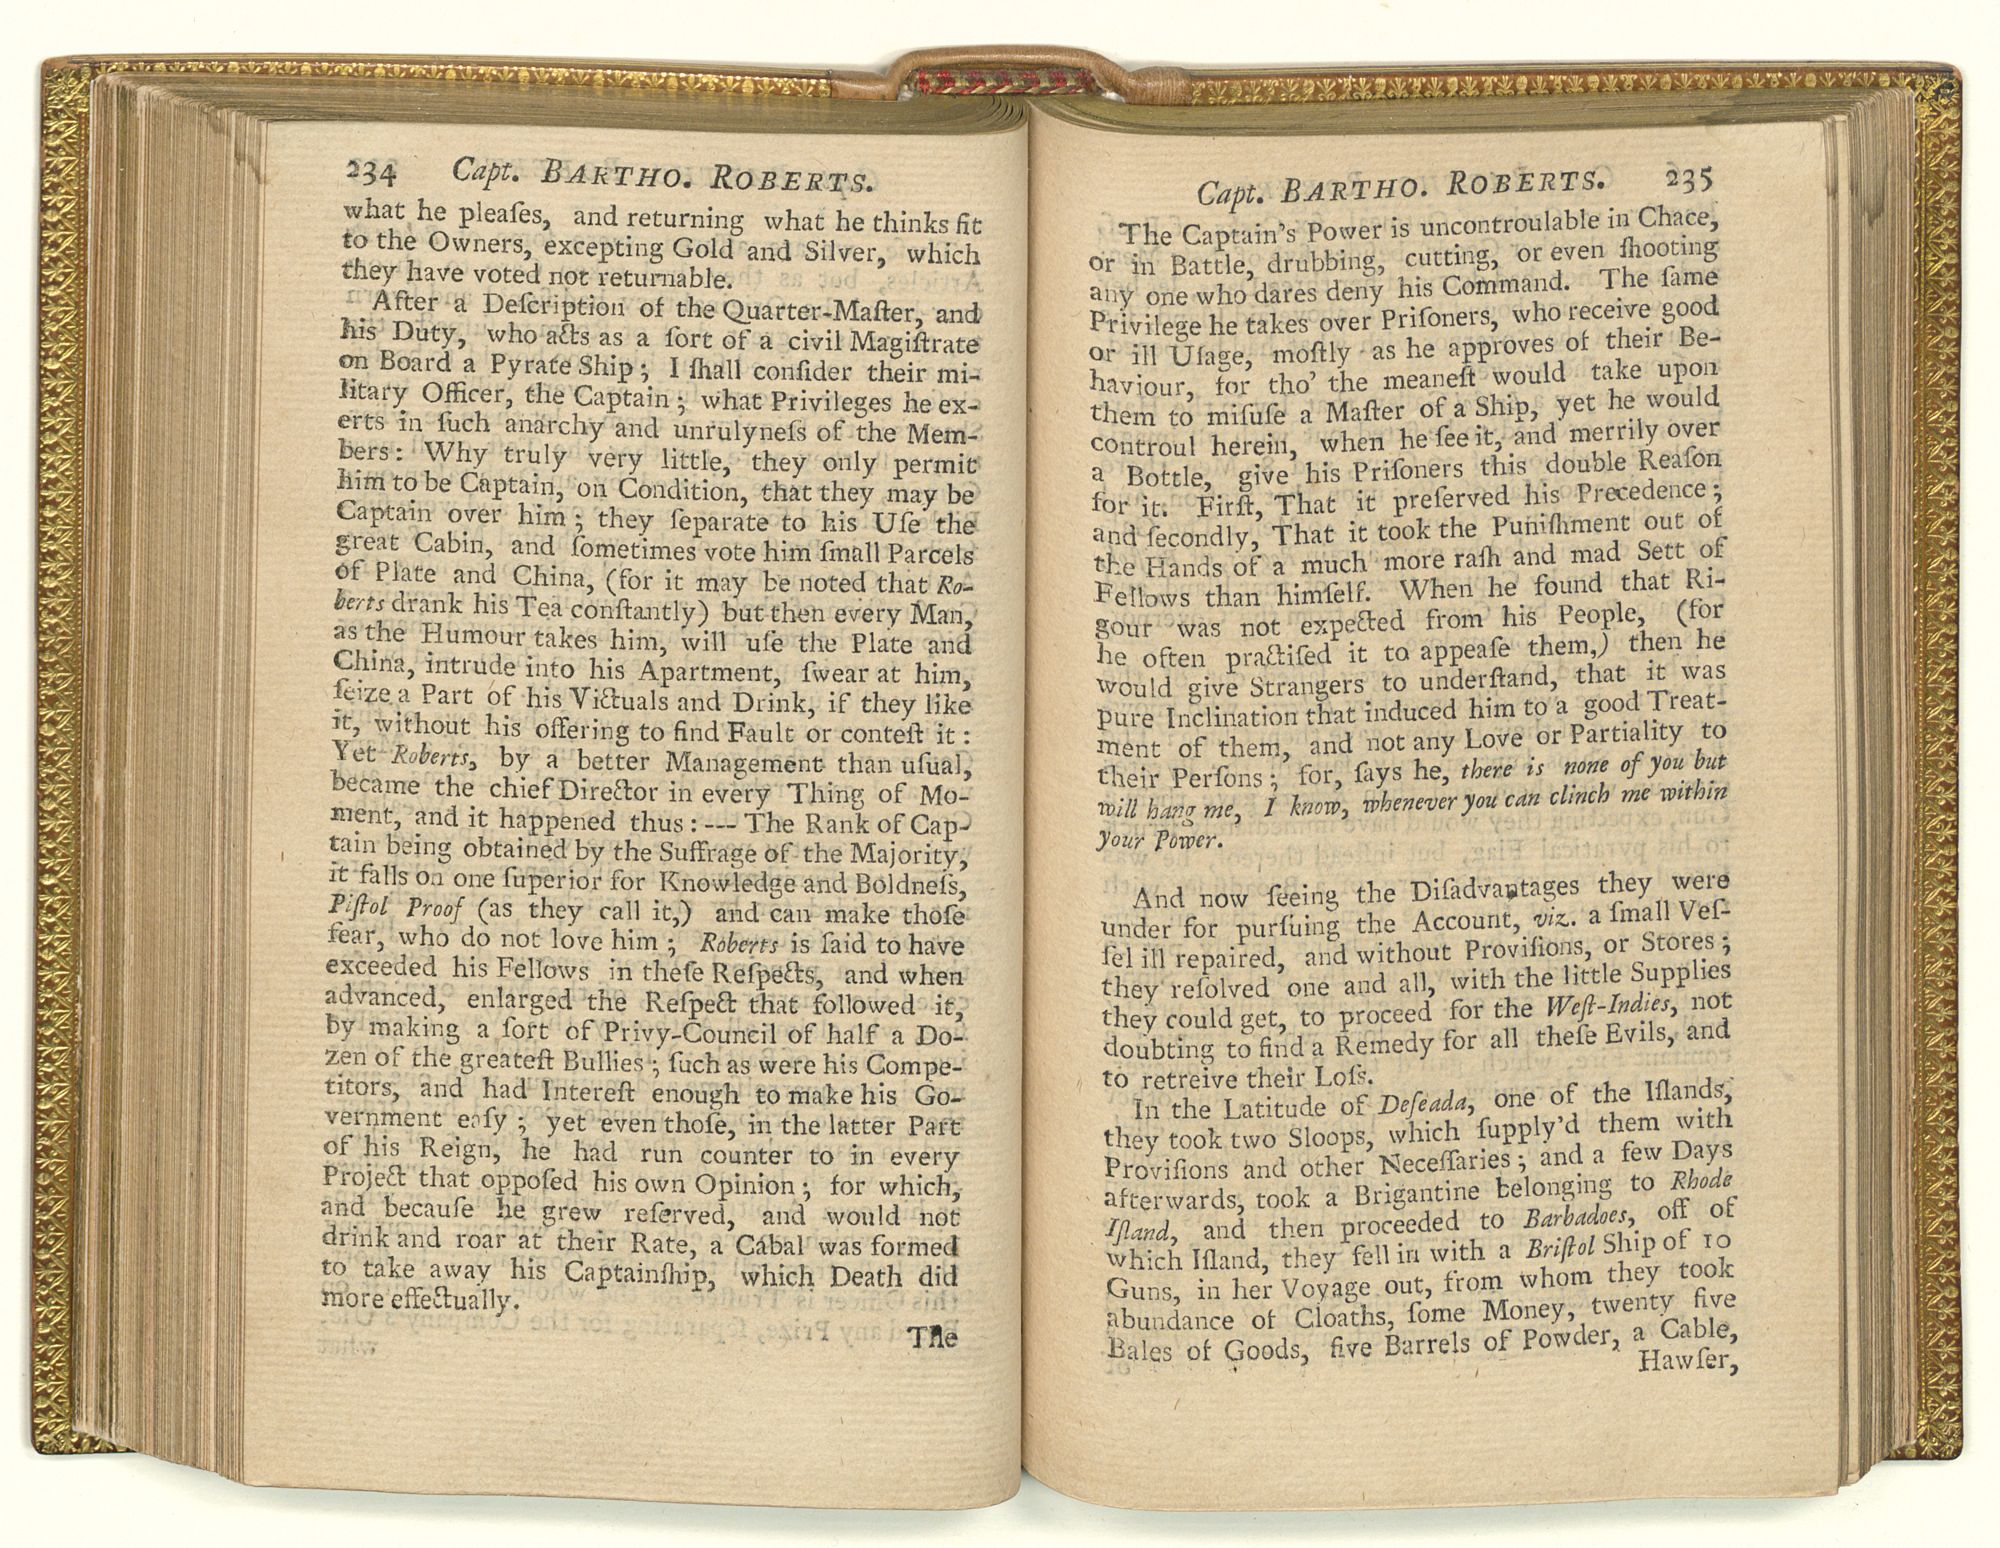 234 Capt. BARTHO. ROBERTS.
what he pleaſes, and returning what he thinks fit
to the Owners, excepting Gold and Silver, which
they have voted not returnable.
After a Deſcription of the Quarter-Maſter, and
his Duty, who acts as a ſort of a civil Magiſtrate
on Board a Pyrate Ship; I ſhall conſider their mi-
litary Officer, the Captain; what Privileges he ex-
erts in ſuch anarchy and unrulyneſs of the Mem-
bers: Why truly very little, they only permit
him to be Captain, on Condition, that they may be
Captain over him; they ſeparate to his Uſe the
great Cabin, and ſometimes vote him ſmall Parcels
of Plate and China, (for it may be noted that Ro-
berts drank his Tea conſtantly) but then every Man,
as the Humour takes him, will uſe the Plate and
China, intrude into his Apartment, ſwear at him,
ſeize a Part of his Victuals and Drink, if they like
it, without his offering to find Fault or conteſt it:
Yet Roberts, by a better Management than uſual,
became the chief Director in every Thing of Mo-
ment, and it happened thus: --- The Rank of Cap-
tain being obtained by the Suffrage of the Majority,
it falls on one ſuperior for Knowledge and Boldneſs,
Piſtol Proof (as they call it,) and can make thoſe
fear, who do not love him; Roberts is ſaid to have
exceeded his Fellows in theſe Reſpects, and when
advanced, enlarged the Reſpect that followed it,
by making a ſort of Privy-Council of half a Do-
zen of the greateſt Bullies; ſuch as were his Compe-
titors, and had Intereſt enough to make his Go-
vernment eaſy; yet even thoſe, in the latter Part
of his Reign, he had run counter to in every
Project that oppoſed his own Opinion; for which,
and becauſe he grew reſerved, and would not
drink and roar at their Rate, a Cabal was formed
to take away his Captainſhip, which Death did
more effectually.
The
Capt. BARTHO. ROBERTS. 235
The Captain's Power is uncontroulable in Chace,
or in Battle, drubbing, cutting, or even ſhooting
any one who dares deny his Command. The ſame
Privilege he takes over Priſoners, who receive good
or ill Uſage, moſtly as he approves of their Be-
haviour, for tho' the meaneſt would take upon
them to miſuſe a Maſter of a Ship, yet he would
controul herein, when he ſee it, and merrily over
a Bottle, give his Priſoners this double Reaſon
for it. Firſt, That it preſerved his Precedence;
and ſecondly, That it took the Puniſhment out of
the Hands of a much more raſh and mad Sett of
Fellows than himſelf. When he found that Ri-
gour was not expected from his People, (for
he often practiſed it to appeaſe them,) then he
would give Strangers to underſtand, that it was
pure Inclination that induced him to a good Treat-
ment of them, and not any Love or Partiality to
their Perſons; for, ſays he, there is none of you but
will hang me, I know, whenever you can clinch me within
your Power.
And now ſeeing the Diſadvantages they were
under for purſuing the Account, viz. a ſmall Veſ-
ſel ill repaired, and without Proviſions, or Stores;
they reſolved one and all, with the little Supplies
they could get, to proceed for the Weſt-Indies, not
doubting to find a Remedy for all theſe Evils, and
to retreive their Loſs.
In the Latitude of Deſeada, one of the Iſlands,
they took two Sloops, which ſupply'd them with
Proviſions and other Neceſſaries; and a few Days
afterwards, took a Brigantine belonging to Rhode
Iſland, and then proceeded to Barbadoes, off of
which Iſland, they fell in with a Briſtol Ship of 10
Guns, in her Voyage out, from whom they took
abundance of Cloaths, ſome Money, twenty five
Bales of Goods, five Barrels of Powder, a Cable,
Hawſer,